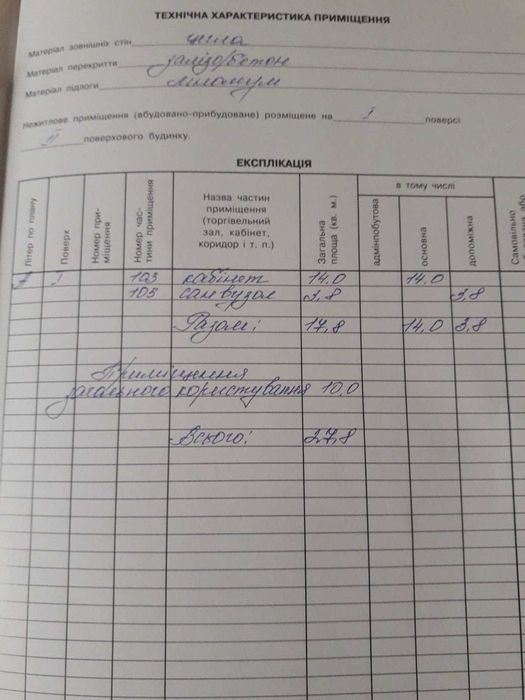 ТЕХНІЧНА ХАРАКТЕРИСТИКА ПРИМІЩЕННЯ
Матеріал зовнішніх стін цегла
Матеріал перекриття залізобетон
Матеріал підлоги лінолеум
Нежитлове приміщення (вбудовано-прибудоване) розміщене на I поверсі
II поверхового будинку.
ЕКСПЛІКАЦІЯ
Літер по плану
Поверх
Номер при-
міщення
Номер час-
тини приміщення
Назва частин
приміщення
(торгівельний
зал, кабінет,
коридор і т. п.)
Загальна
площа (кв. м.)
в тому числі
адмінпобутова
основна
допоміжна
Самовільно
або
I 103 кабінет 14,0 14,0
105 санвузол 3,8 3,8
Разом: 17,8 14,0 3,8
Приміщення
загального користування 10,0
Всього: 27,8